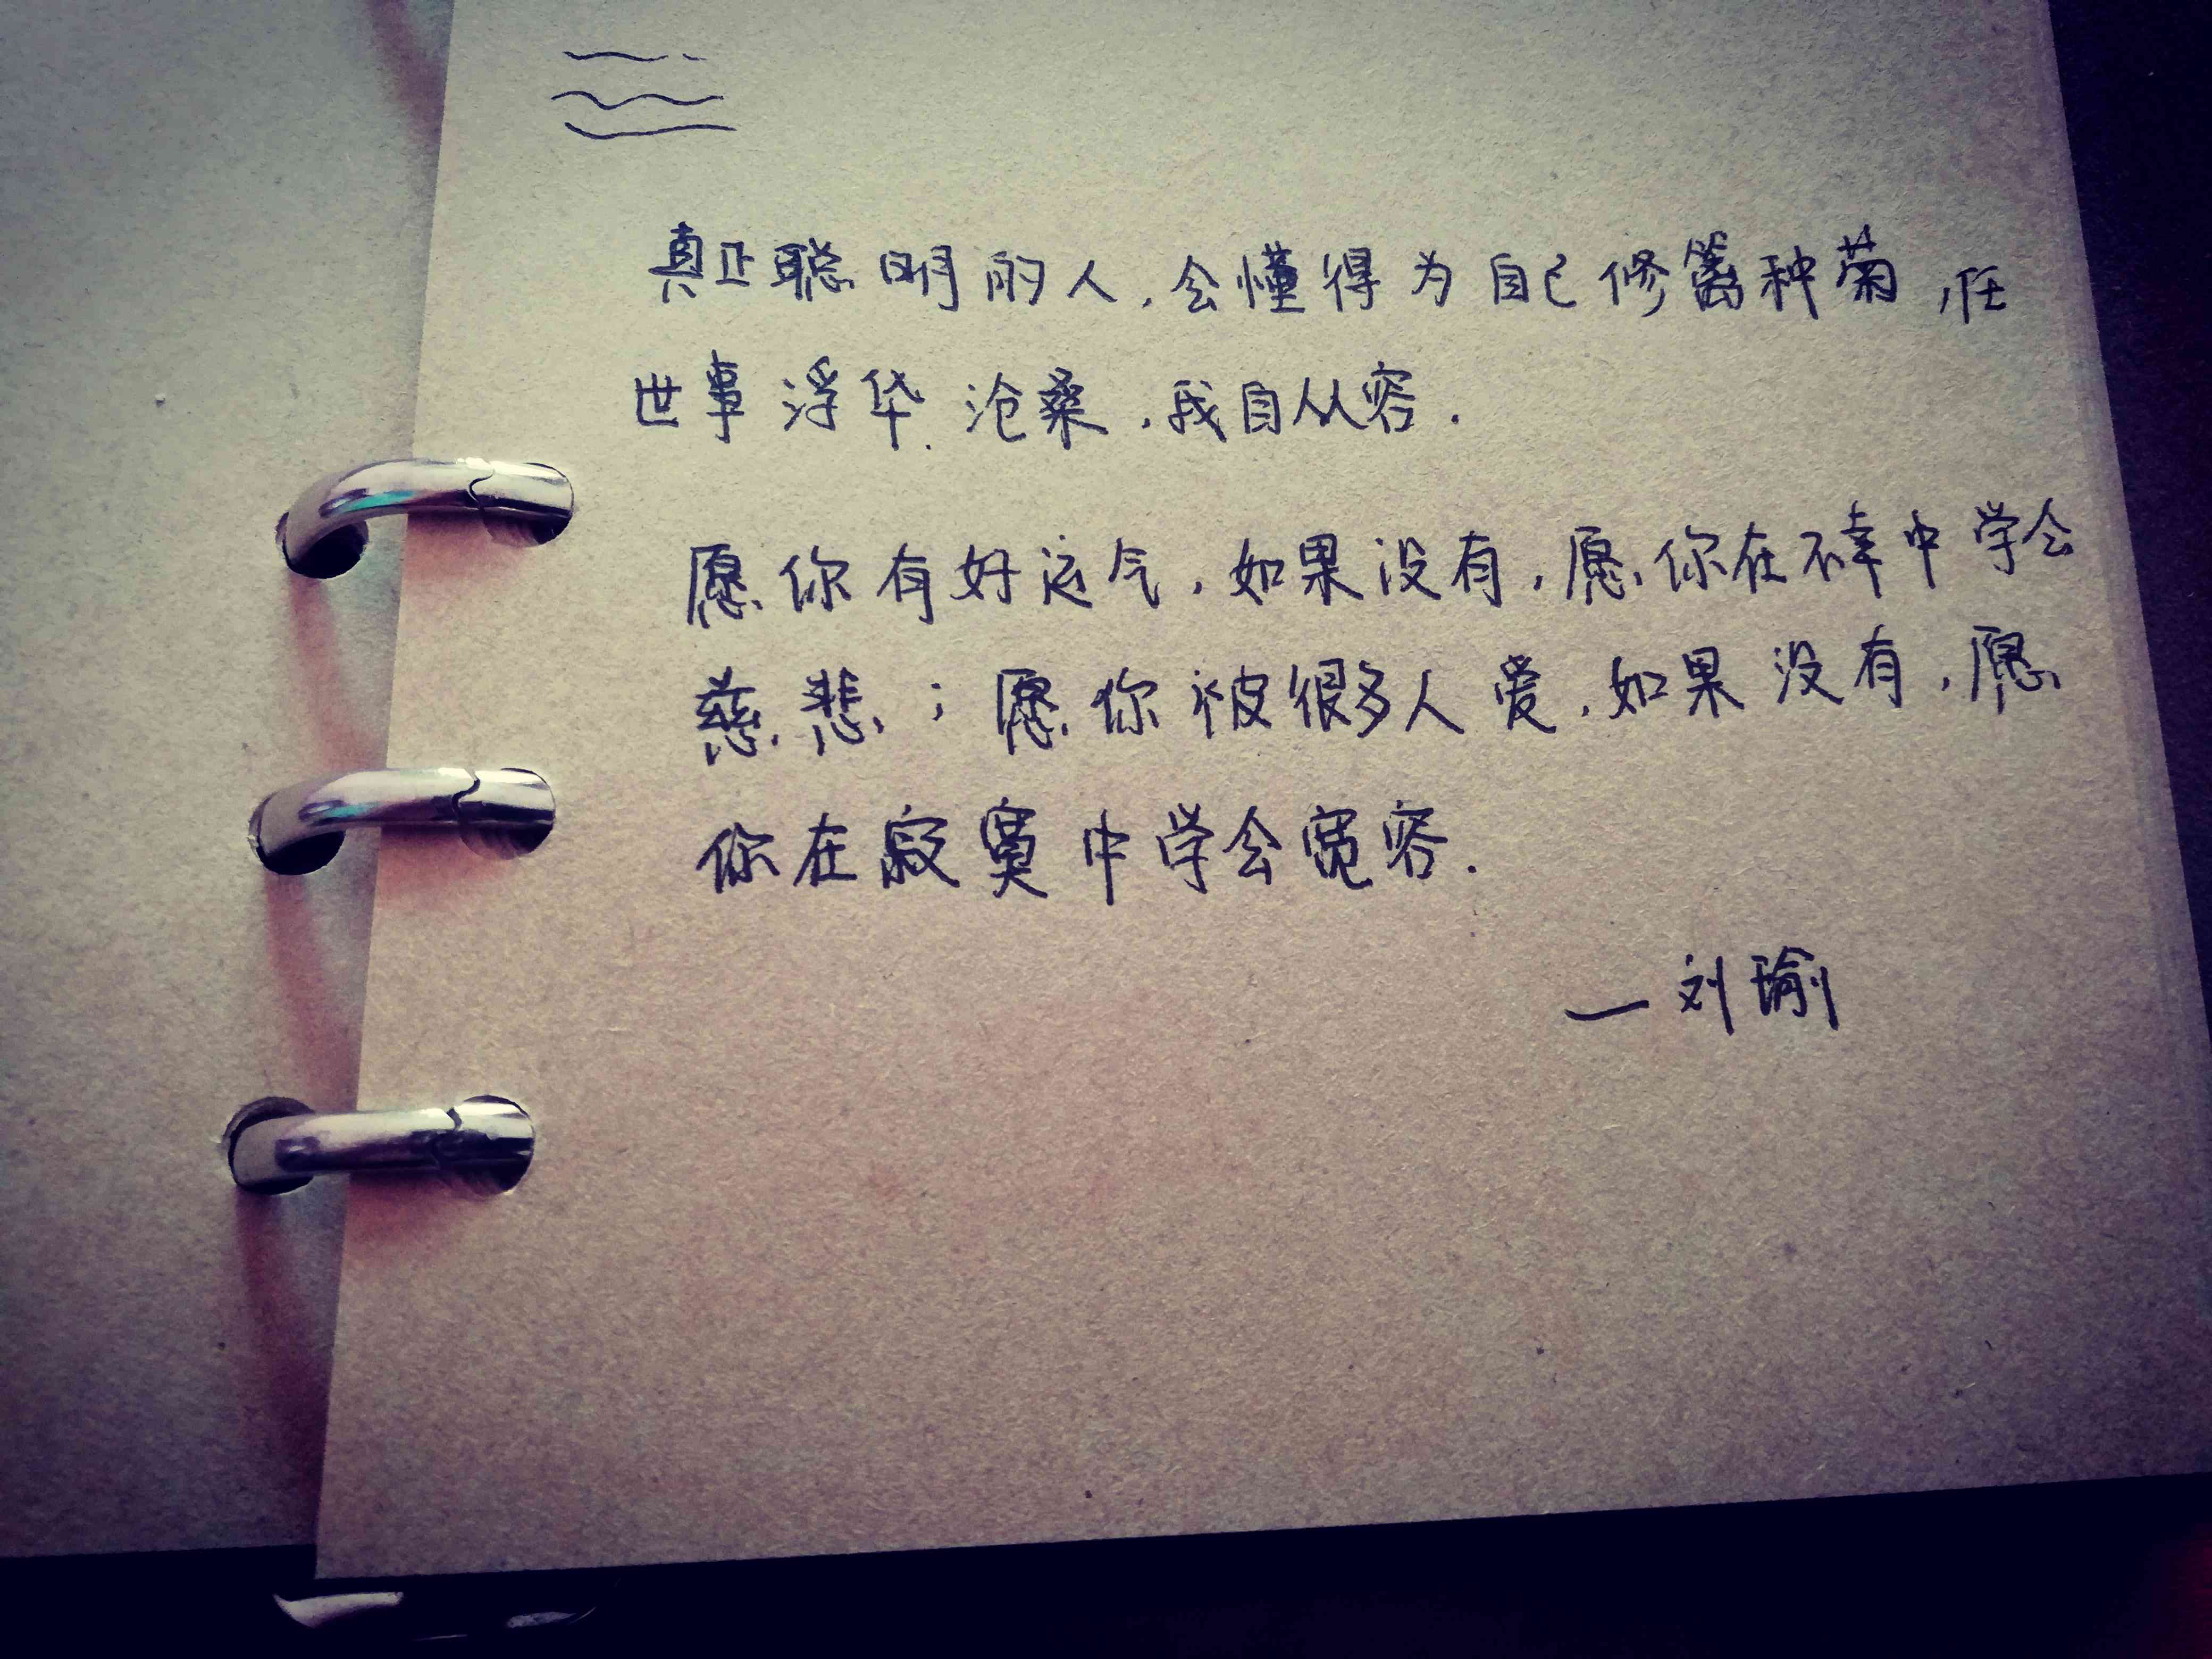 真正聪明的人,会懂得为自己修篱种菊,任
世事浮华.沧桑,我自从容.
愿你有好运气,如果没有,愿你在不幸中学会
慈悲;愿你被很多人爱,如果没有,愿
你在寂寞中学会宽容.
—刘瑜